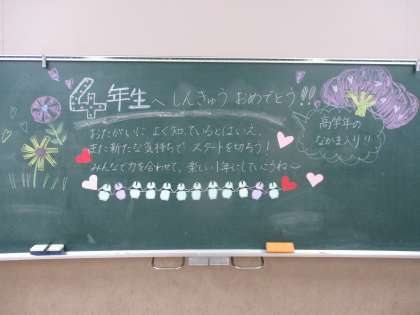 4年生へ しんきゅう おめでとう!!
おたがいに よく知っているとはいえ、
また新たな気持ちで スタートを切ろう!
みんなで力を合わせて、楽しい1年にしていこうね〜
高学年の
なかま入り!!